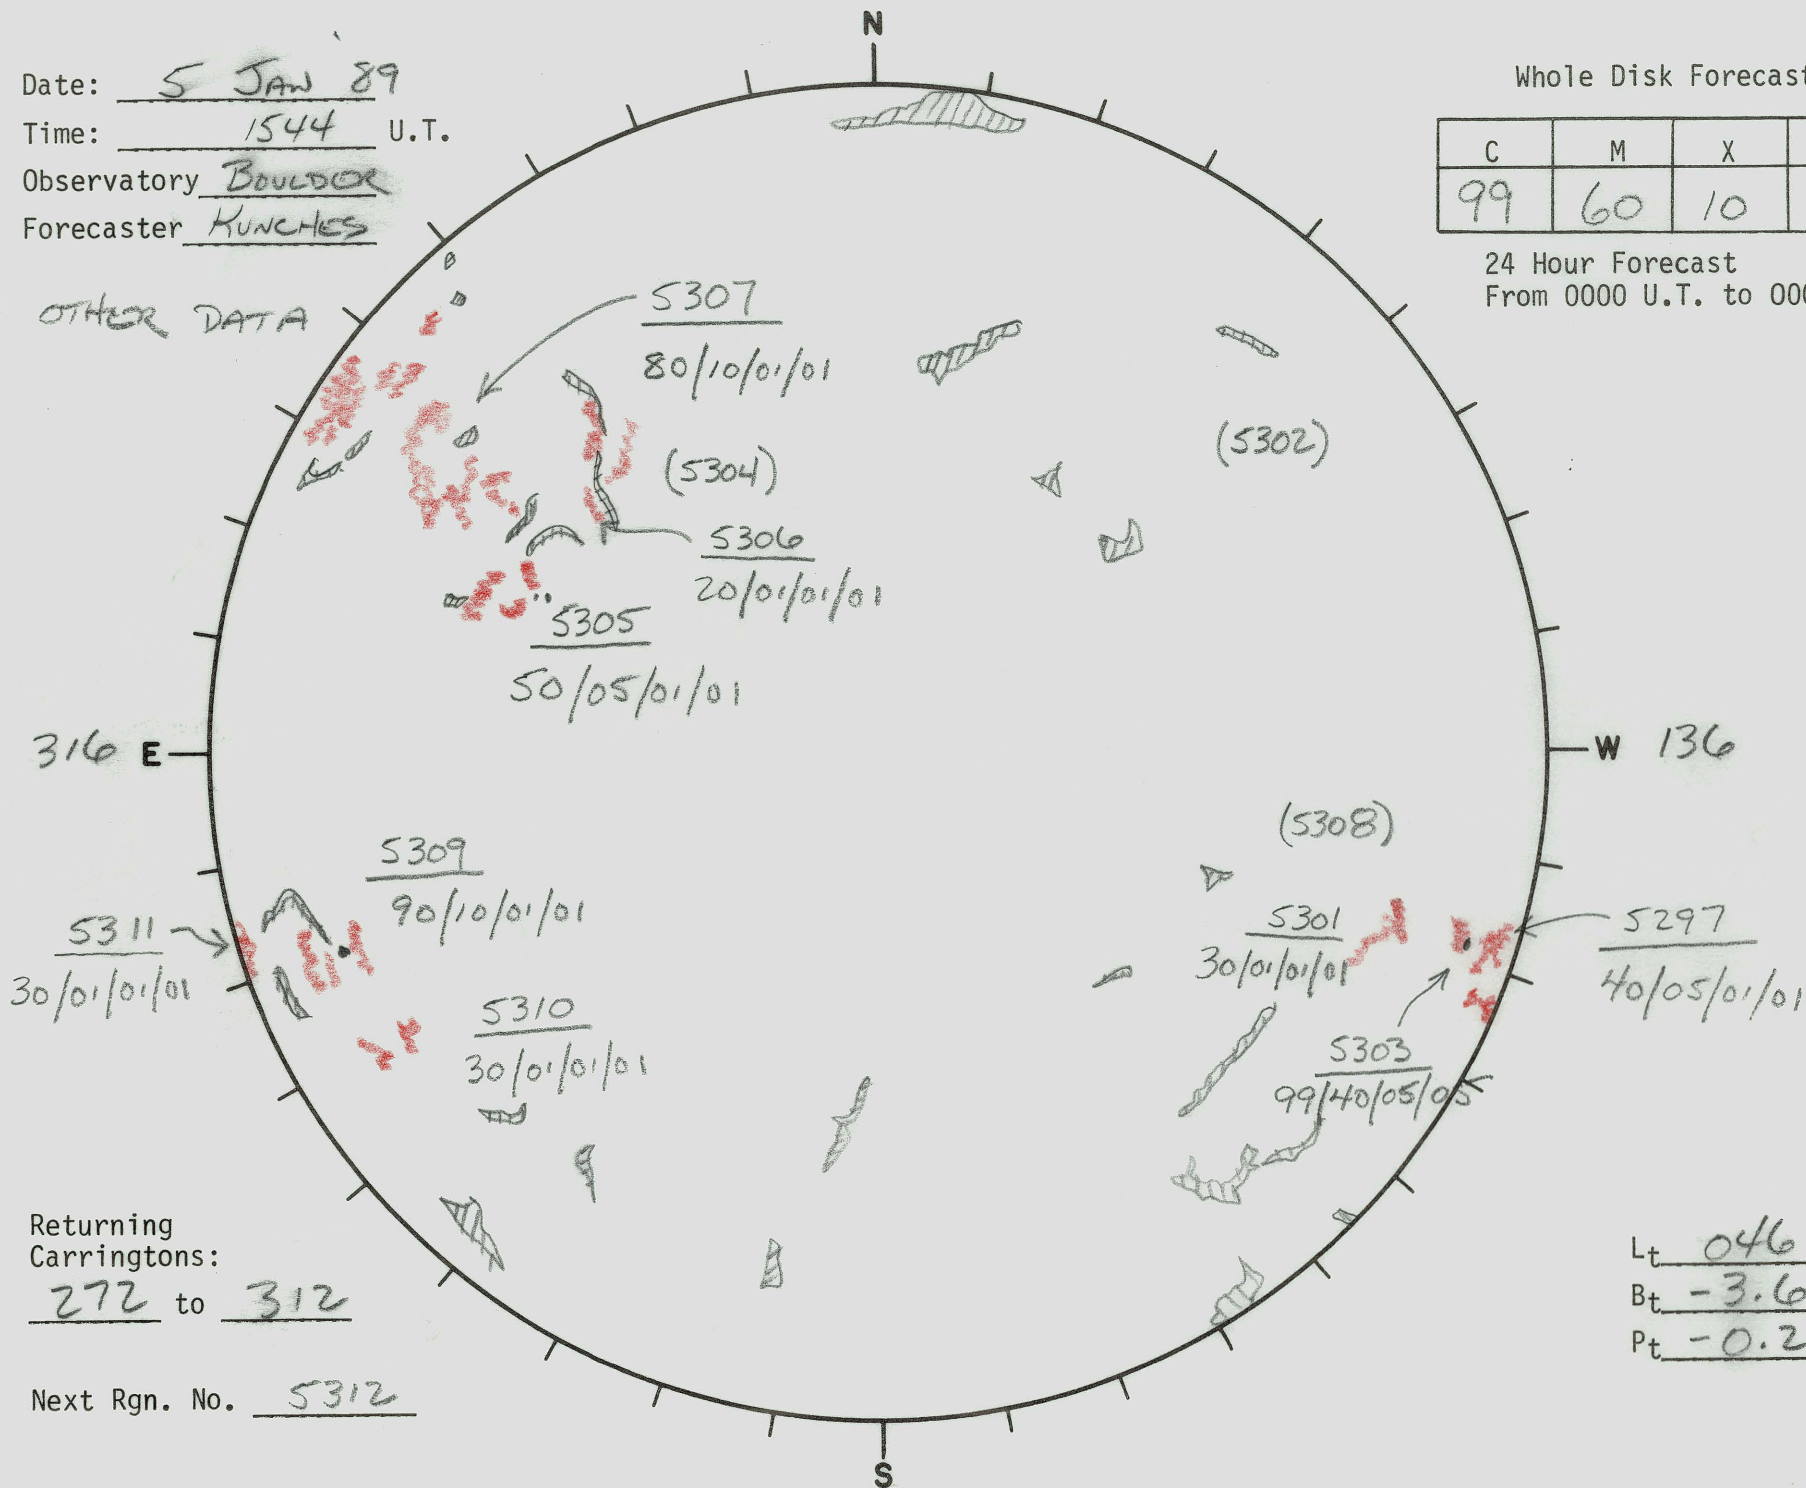 N
Date: 5 JAN 89
Time: 1544 U.T.
Observatory BOULDER
Forecaster KUNCHES
OTHER DATA
Whole Disk Forecast
C M X
99 60 10
24 Hour Forecast
From 0000 U.T. to 000
5307
80/10/01/01
(5302)
(5304)
5306
20/01/01/01
5305
50/05/01/01
316 E
W 136
(5308)
5309
90/10/01/01
5311
30/01/01/01
5301
30/01/01/01
5297
40/05/01/01
5310
30/01/01/01
5303
99/40/05/05
Returning
Carringtons:
272 to 312
Next Rgn. No. 5312
Lt 046
Bt -3.6
Pt -0.2
S